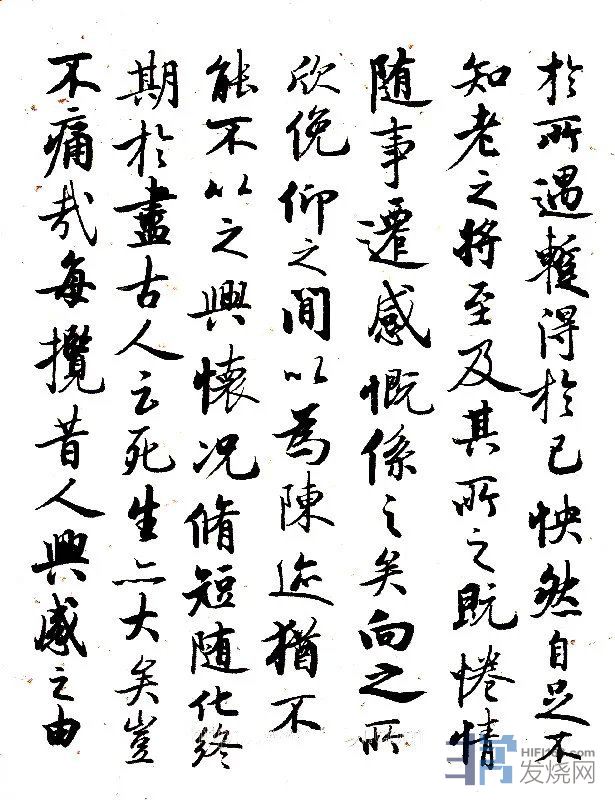 於所遇暫得於己怏然自足不
知老之将至及其所之既惓情
随事遷感慨係之矣向之所
欣俛仰之間以為陳迹猶不
能不以之興懷况脩短随化終
期於盡古人云死生亦大矣豈
不痛哉每攬昔人興感之由
HIFI168.com
发烧网